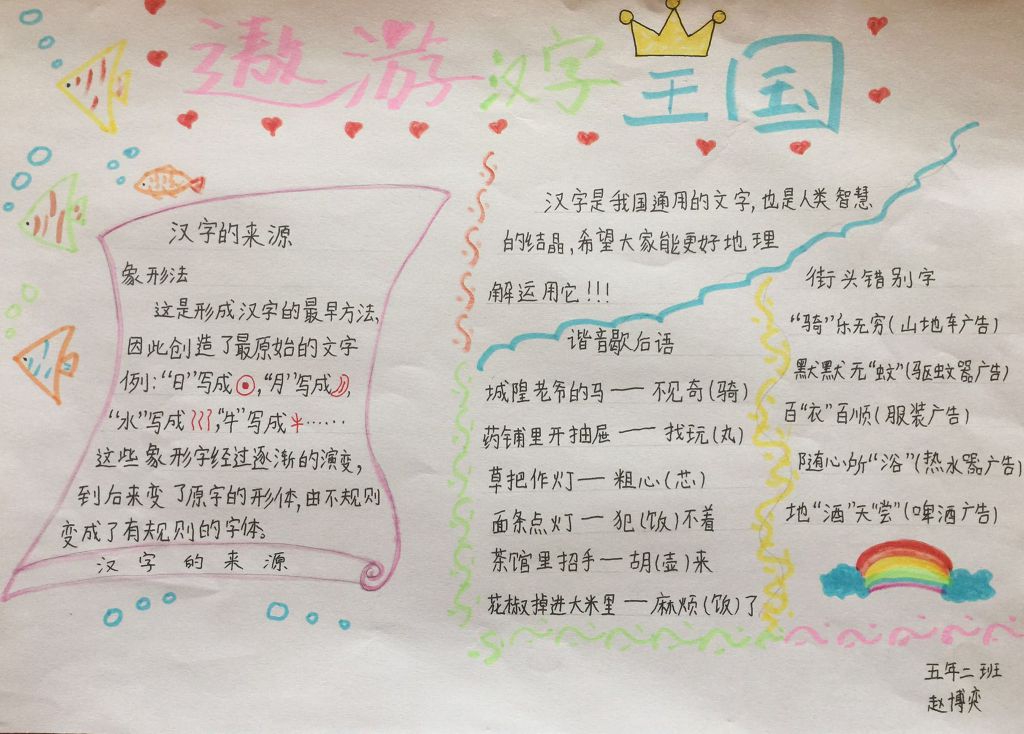 遨游汉字王国
汉字的来源
象形法
这是形成汉字的最早方法,
因此创造了最原始的文字
例:“日”写成,“月”写成,
“水”写成,“牛”写成……
这些象形字经过逐渐的演变,
到后来变了原字的形体,由不规则
变成了有规则的字体。
汉字的来源
汉字是我国通用的文字,也是人类智慧
的结晶,希望大家能更好地理
解运用它!!!
谐音歇后语
城隍老爷的马——不见奇(骑)
药铺里开抽屉——找玩(丸)
草把作灯——粗心(芯)
面条点灯——犯(饭)不着
茶馆里招手——胡(壶)来
花椒掉进大米里——麻烦(饭)了
街头错别字
“骑”乐无穷(山地车广告)
默默无“蚊”(驱蚊器广告)
百“衣”百顺(服装广告)
随心所“浴”(热水器广告)
地“酒”天“尝”(啤酒广告)
五年二班
赵博奕